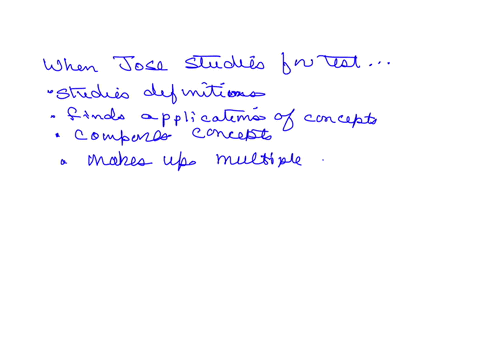 When Jose studies for test...
• studies definitions
• finds applications of concepts
• compares concepts
• makes up multiple